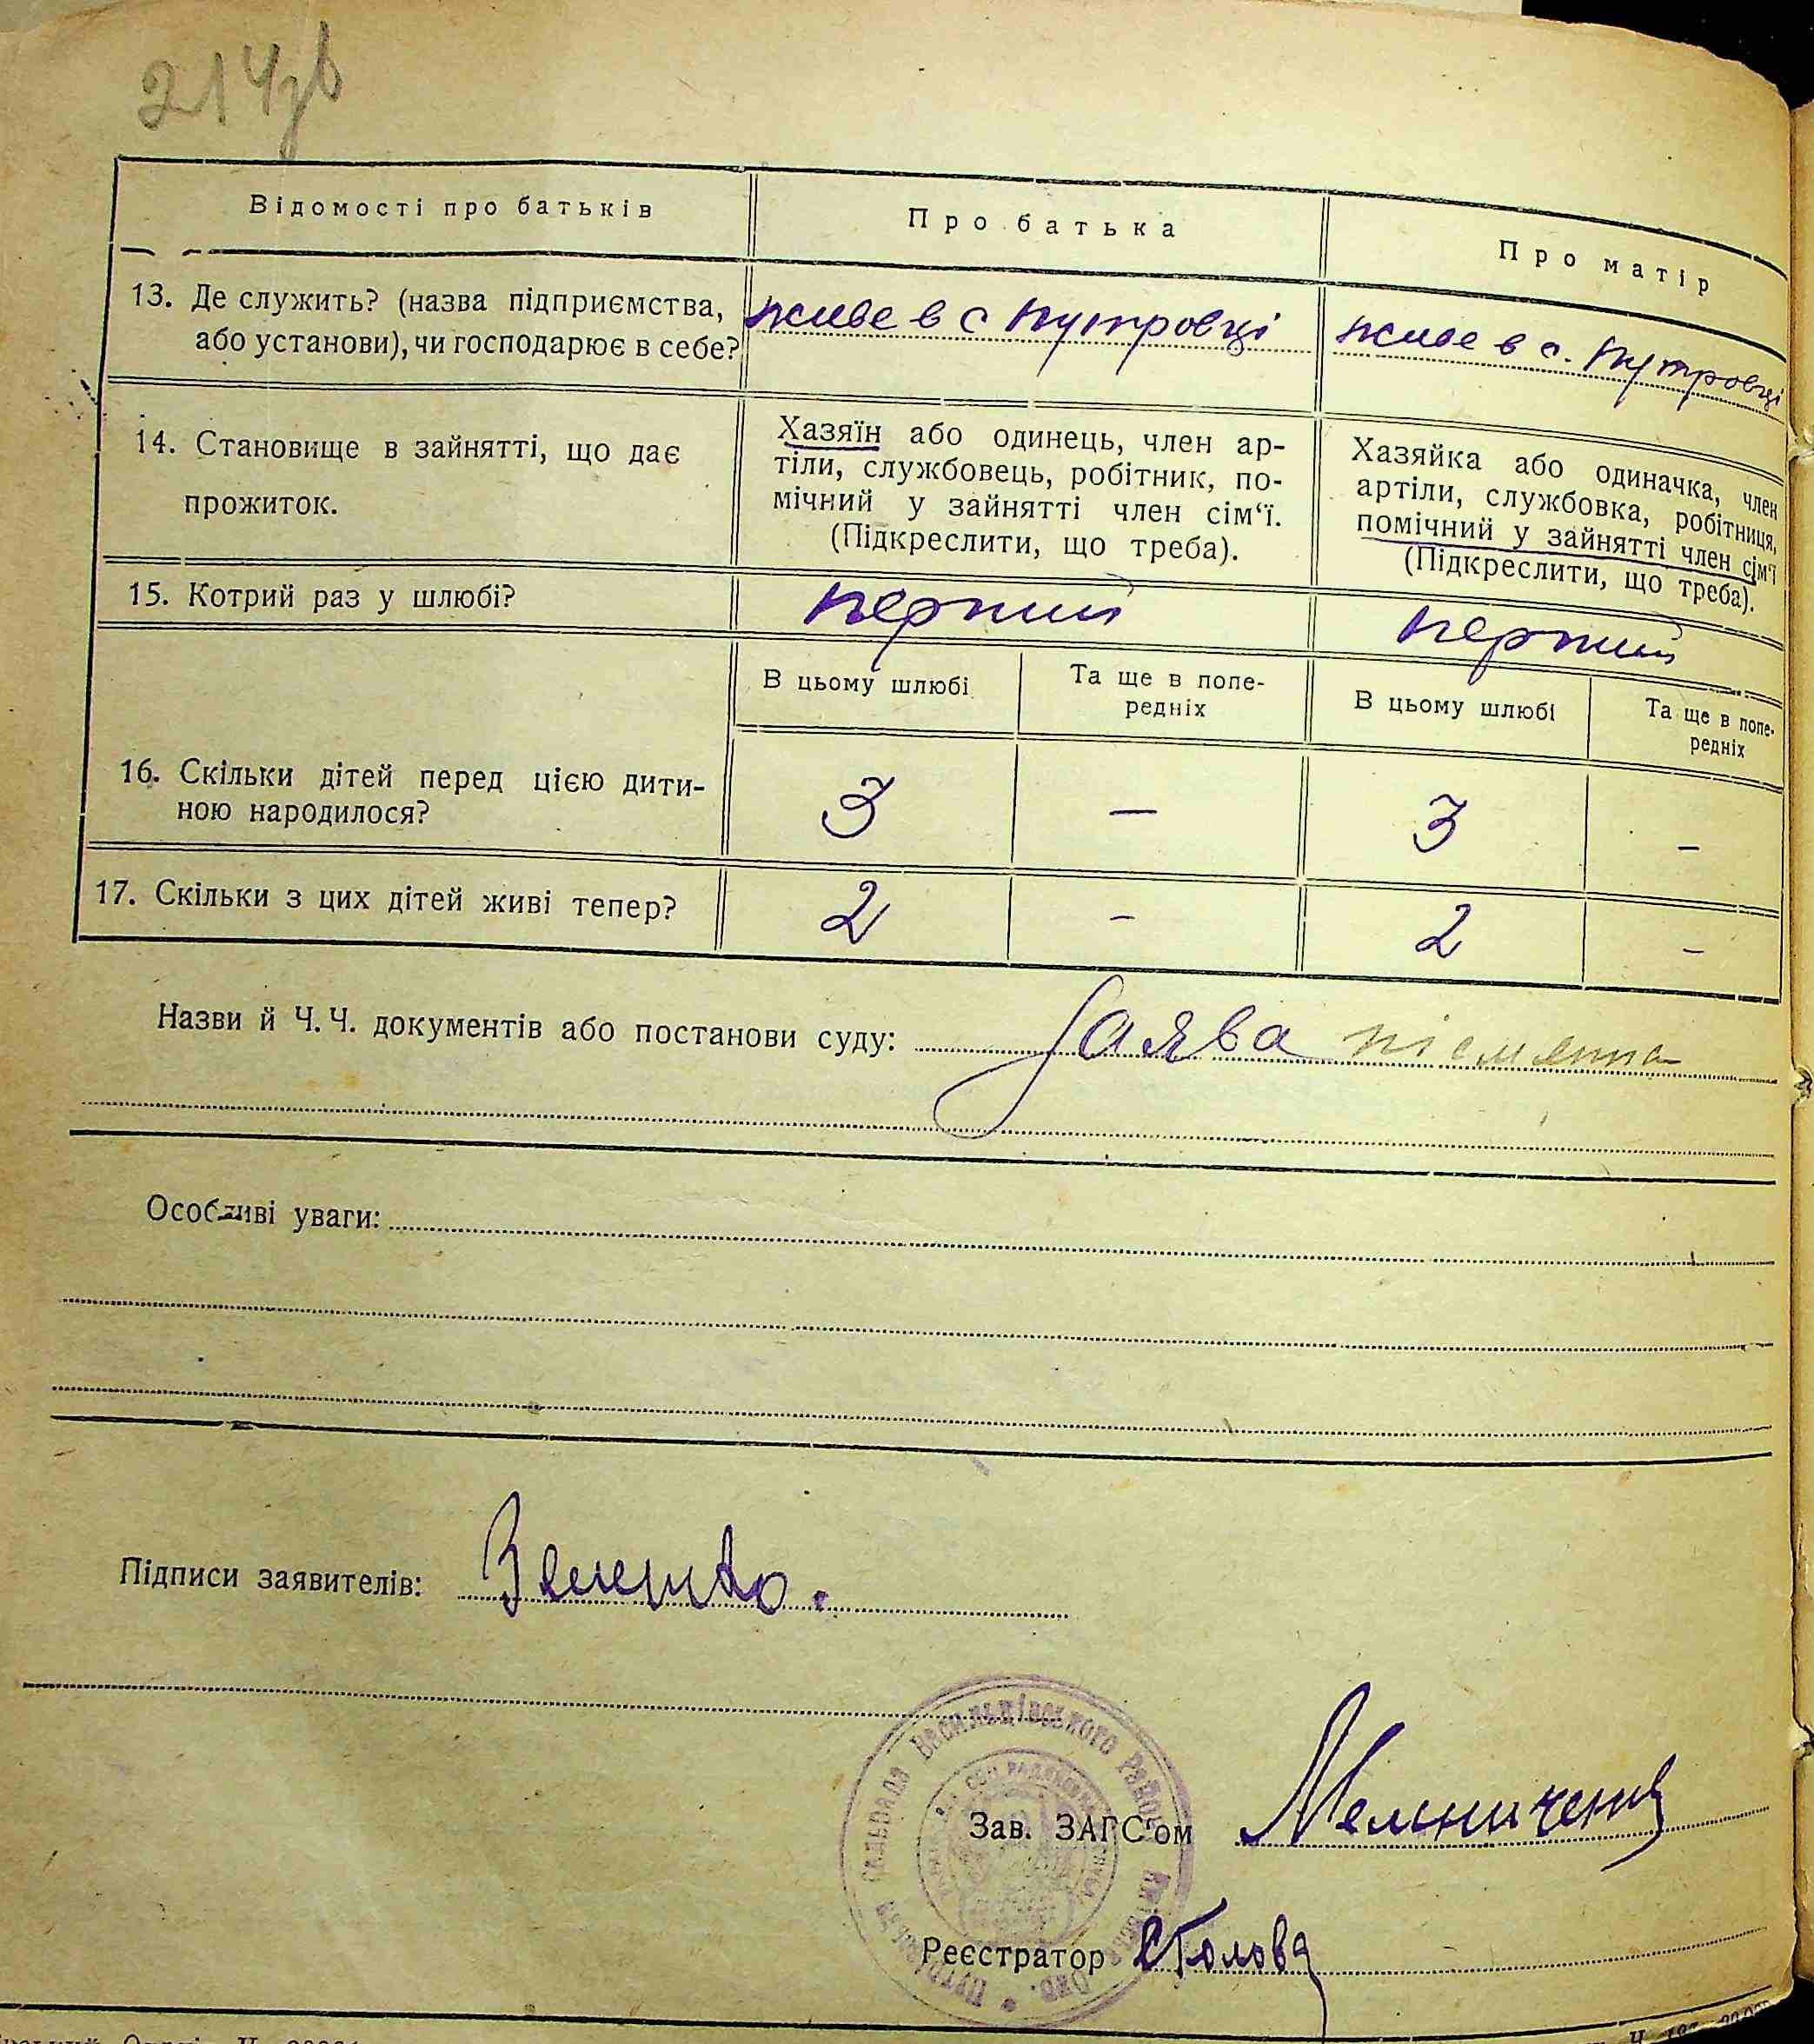 214зв
Відомості про батьків
Про батька
Про матір
13. Де служить? (назва підприємства,
або установи), чи господарює в себе?
живе в с Путровці
живе в с. Путровці
14. Становище в зайнятті, що дає
прожиток.
Хазяїн або одинець, член ар-
тіли, службовець, робітник, по-
мічний у зайнятті член сім‘ї.
(Підкреслити, що треба).
Хазяйка або одиначка, член
артіли, службовка, робітниця,
помічний у зайнятті член сім‘ї
(Підкреслити, що треба).
15. Котрий раз у шлюбі?
перший
перший
В цьому шлюбі
Та ще в попе-
редніх
В цьому шлюбі
Та ще в попе-
редніх
16. Скільки дітей перед цією дити-
ною народилося?
3 — 3 –
17. Скільки з цих дітей живі тепер?
2 – 2 –
Назви й Ч. Ч. документів або постанови суду: Заява
Особливі уваги:
Підписи заявителів:
Васильківського району
сельрада
Зав. ЗАГС‘ом Мельниченко
Реєстратор Голова